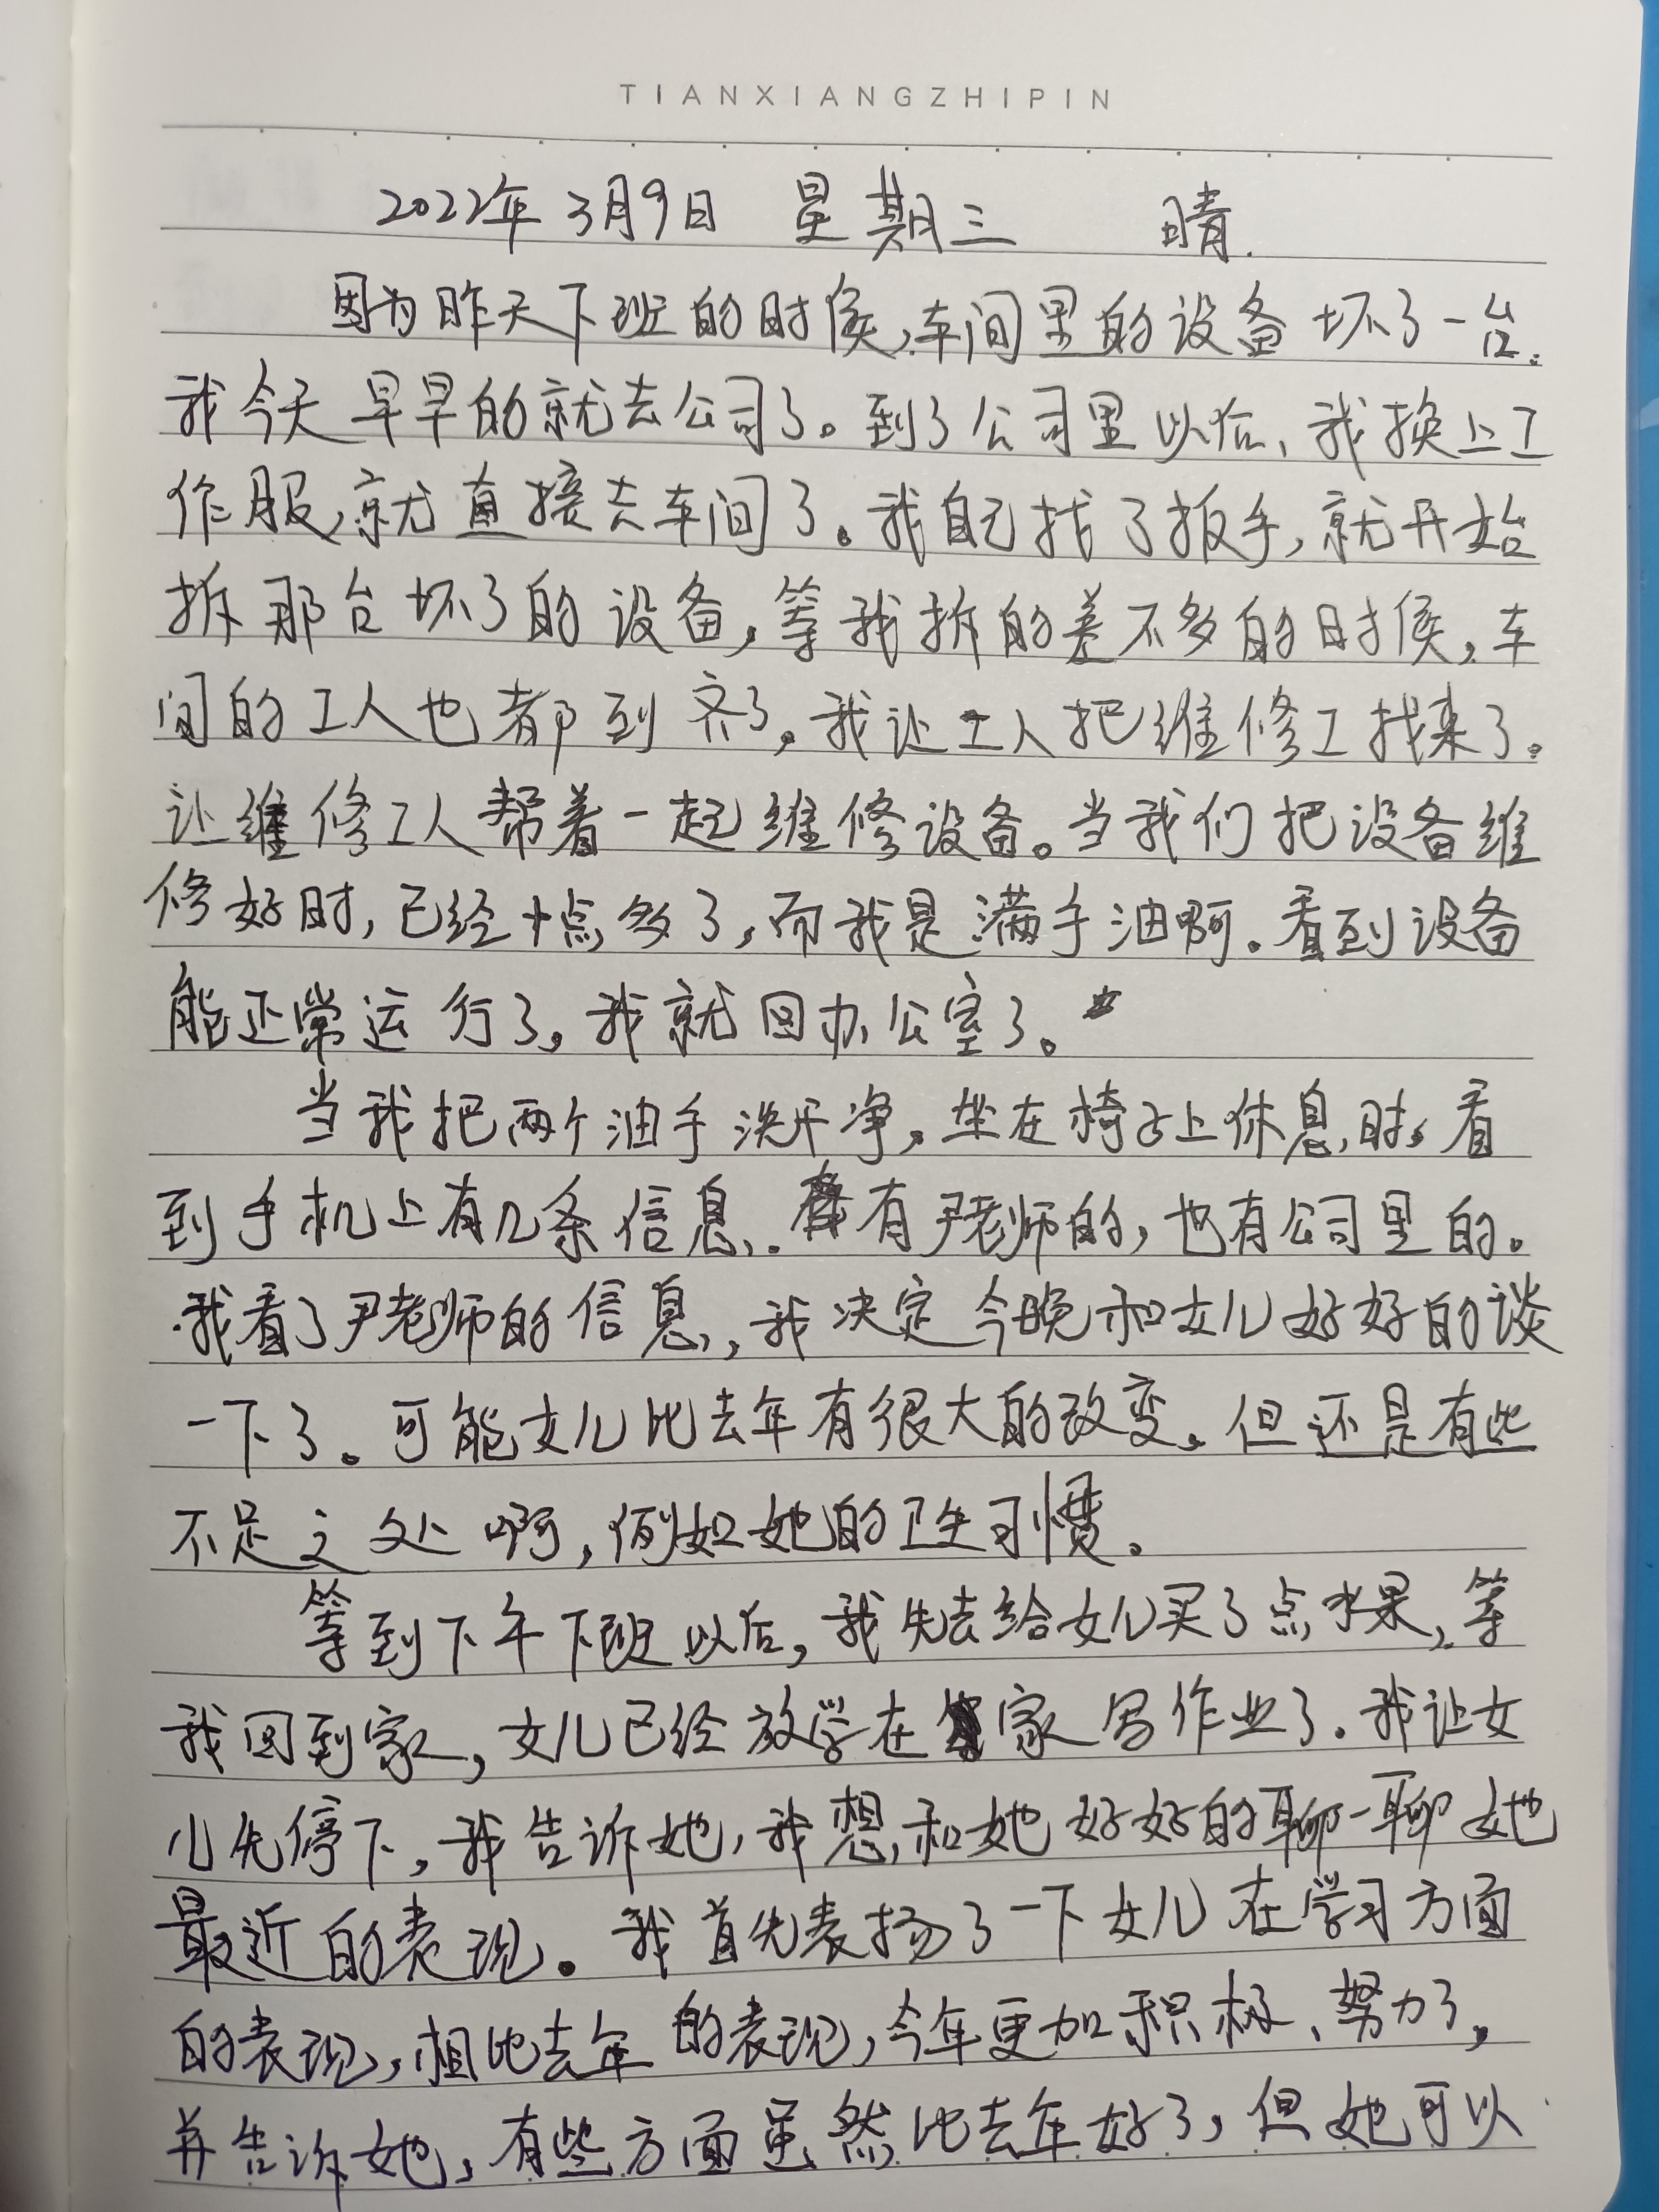 TIANXIANGZHIPIN
2022年3月9日 星期三 晴.
因为昨天下班的时候,车间里的设备坏了一台.
我今天早早的就去公司了。到了公司里以后、我换上工
作服,就直接去车间了。我自己找了扳手,就开始
拆那台坏了的设备,等我拆的差不多的时候,车
间的工人也都到齐了,我让工人把维修工找来了。
让维修工人帮着一起维修设备。当我们把设备维
修好时,已经十点多了,而我是满手油啊。看到设备
能正常运行了,我就回办公室了。
当我把两个油手洗干净,坐在椅子上休息时,看
到手机上有几条信息,有尹老师的,也有公司里的。
我看了尹老师的信息,我决定今晚和女儿好好的谈
一下了。可能女儿比去年有很大的改变,但还是有些
不足之处啊,例如她的卫生习惯。
等到下午下班以后,我先去给女儿买了点水果,等
我回到家,女儿已经放学在家写作业了.我让女
儿先停下,我告诉她,我想和她好好的聊一聊她
最近的表现。我首先表扬了一下女儿在学习方面
的表现,相比去年的表现,今年更加积极、努力了,
并告诉她,有些方面虽然比去年好了,但她可以